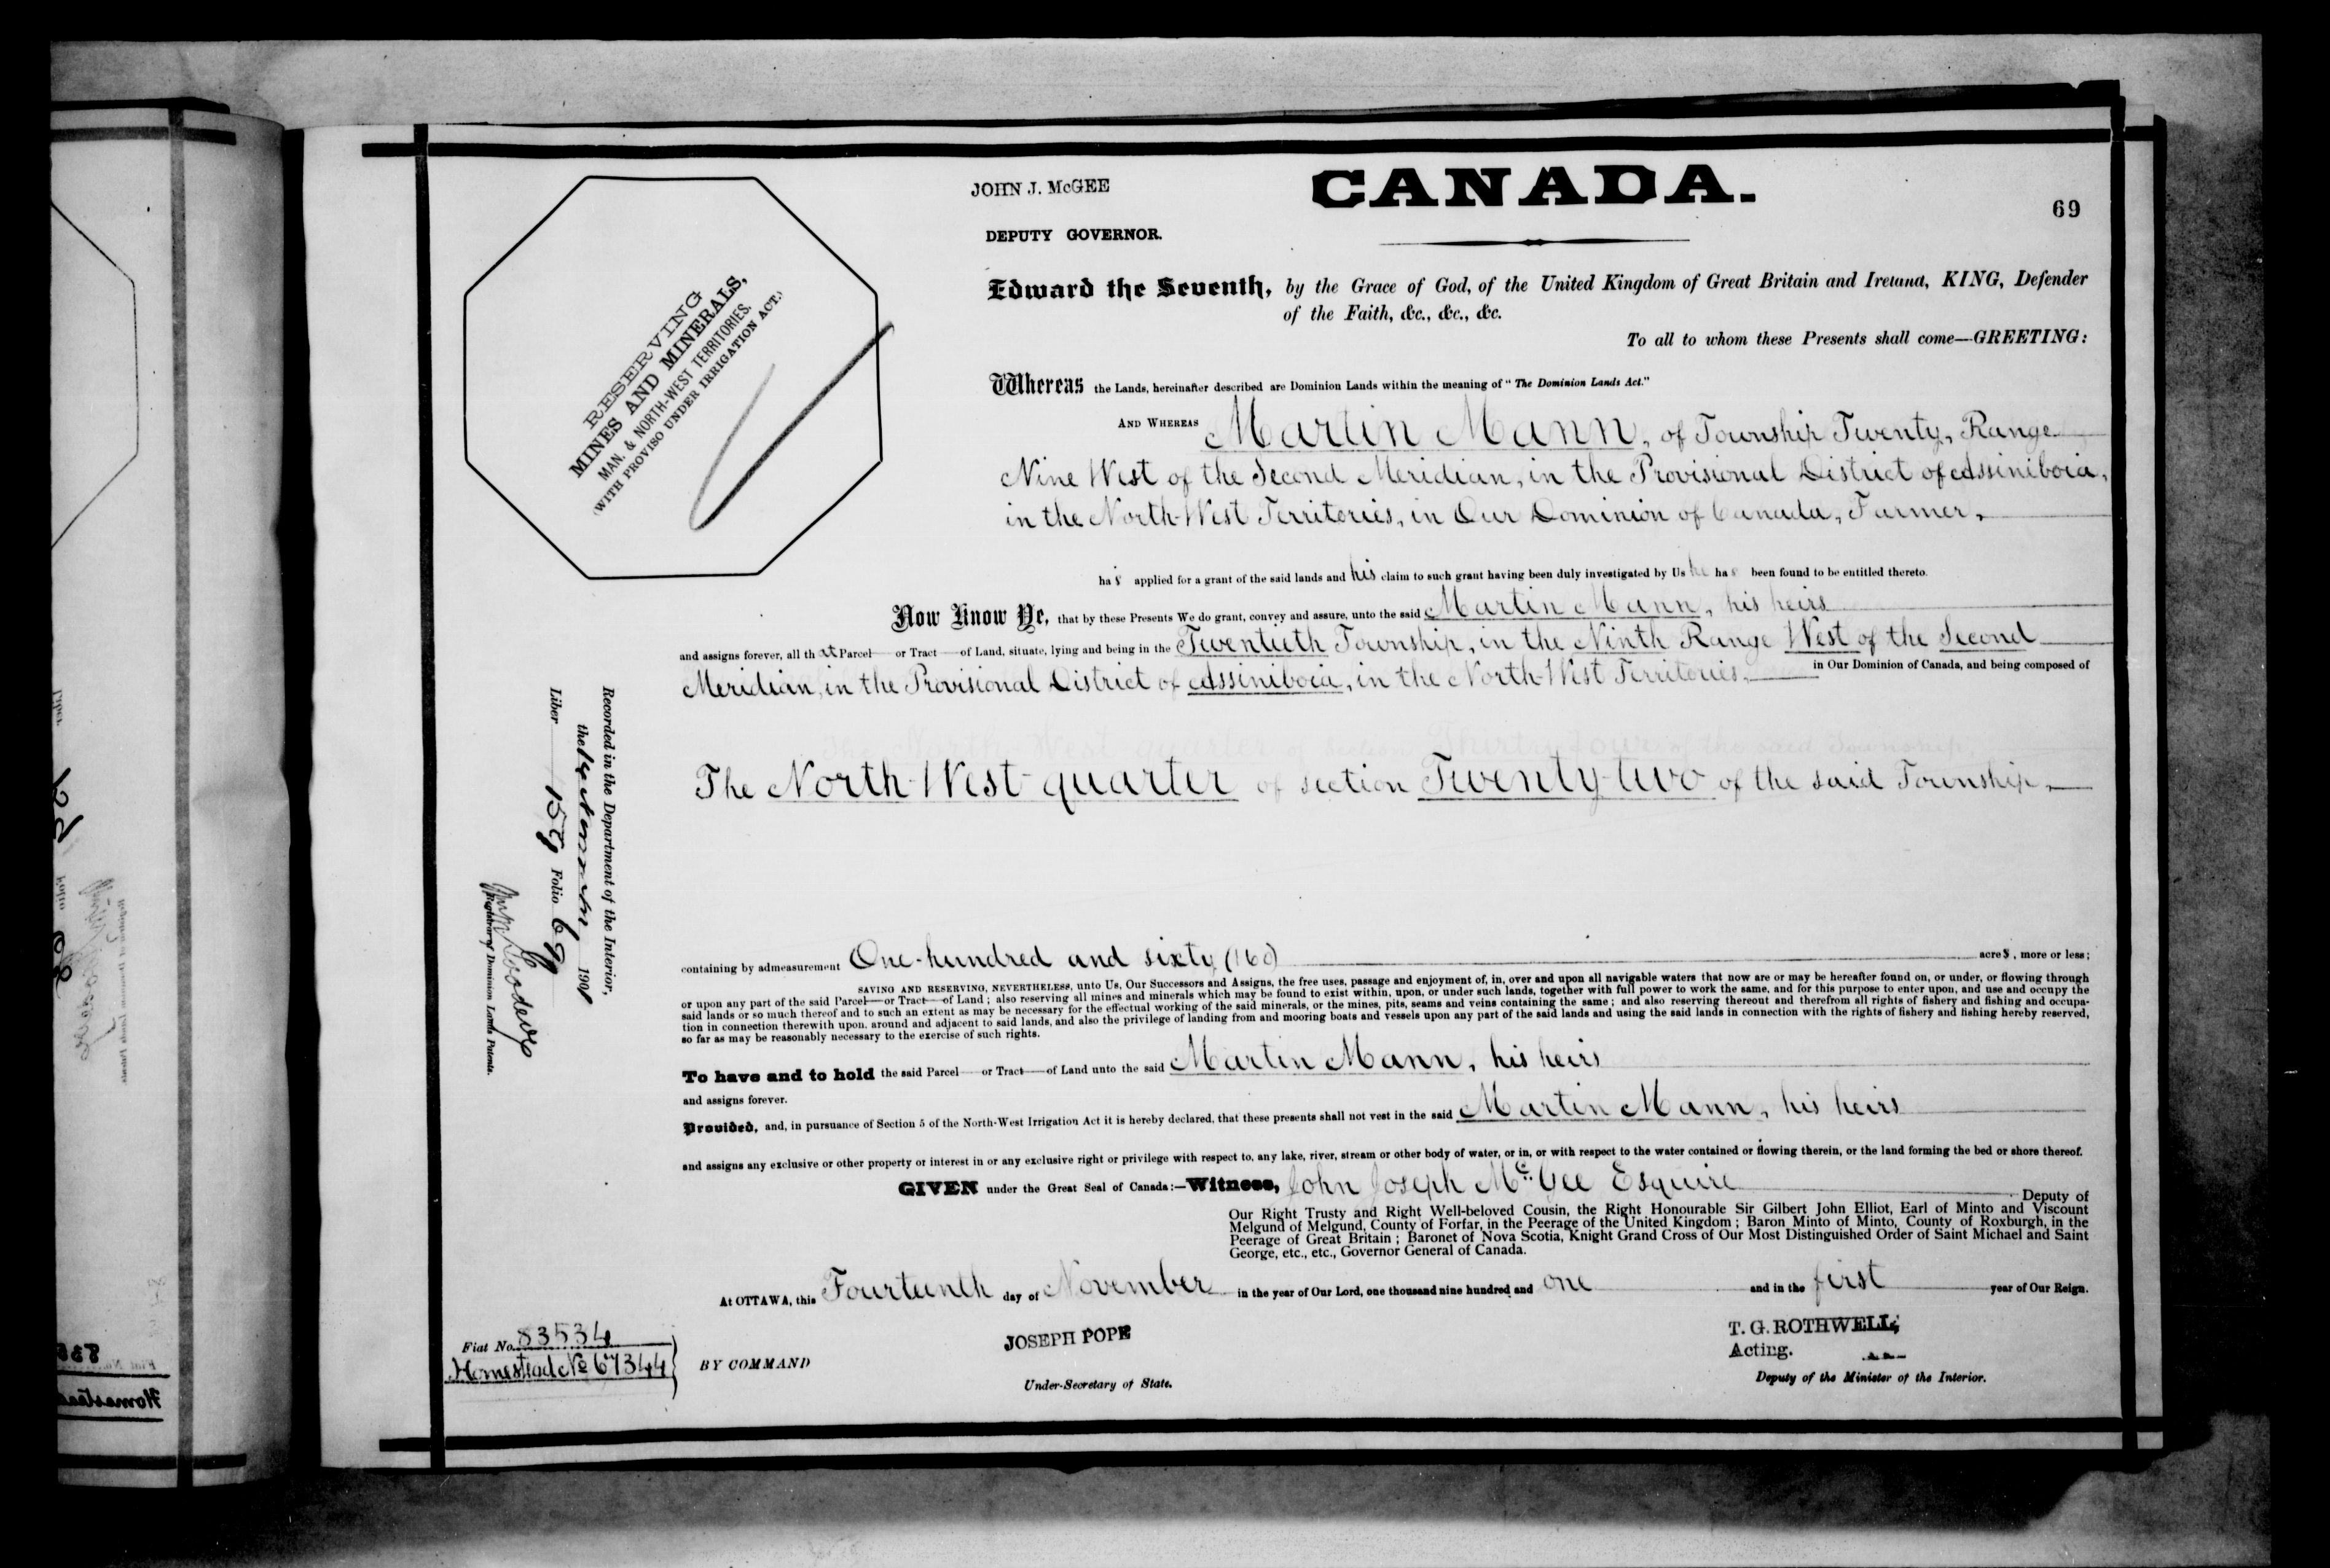 JOHN J. McGEE
DEPUTY GOVERNOR.
CANADA.
69
RESERVING
MINES AND MINERALS,
MAN. & NORTH-WEST TERRITORIES.
(WITH PROVISO UNDER IRRIGATION ACT.)
Edward the Seventh, by the Grace of God, of the United Kingdom of Great Britain and Ireland, KING, Defender
of the Faith, &c., &c., &c.
To all to whom these Presents shall come—GREETING:
Whereas the Lands, hereinafter described are Dominion Lands within the meaning of "The Dominion Lands Act."
AND WHEREAS Martin Mann, of Township Twenty, Range
Nine West of the Second Meridian, in the Provisional District of Assiniboia,
in the North-West Territories, in Our Dominion of Canada, Farmer,
has applied for a grant of the said lands and his claim to such grant having been duly investigated by Us he has been found to be entitled thereto.
Now Know Ye, that by these Presents We do grant, convey and assure, unto the said Martin Mann, his heirs
and assigns forever, all that Parcel or Tract of Land, situate, lying and being in the Twentieth Township, in the Ninth Range West of the Second
Meridian, in the Provisional District of Assiniboia, in the North-West Territories, in Our Dominion of Canada, and being composed of
The North-West-quarter of section Twenty-two of the said Township,
containing by admeasurement One-hundred and sixty (160) acres, more or less;
SAVING AND RESERVING, NEVERTHELESS, unto Us, Our Successors and Assigns, the free uses, passage and enjoyment of, in, over and upon all navigable waters that now are or may be hereafter found on, or under, or flowing through
or upon any part of the said Parcel—or Tract—of Land; also reserving all mines and minerals which may be found to exist within, upon, or under such lands, together with full power to work the same, and for this purpose to enter upon, and use and occupy the
said lands or so much thereof and to such an extent as may be necessary for the effectual working of the said minerals, or the mines, pits, seams and veins containing the same; and also reserving thereout and therefrom all rights of fishery and fishing and occupa-
tion in connection therewith upon, around and adjacent to said lands, and also the privilege of landing from and mooring boats and vessels upon any part of the said lands and using the said lands in connection with the rights of fishery and fishing hereby reserved,
so far as may be reasonably necessary to the exercise of such rights.
To have and to hold the said Parcel—or Tract—of Land unto the said Martin Mann, his heirs
and assigns forever.
Provided, and, in pursuance of Section 5 of the North-West Irrigation Act it is hereby declared, that these presents shall not vest in the said Martin Mann, his heirs
and assigns any exclusive or other property or interest in or any exclusive right or privilege with respect to, any lake, river, stream or other body of water, or in, or with respect to the water contained or flowing therein, or the land forming the bed or shore thereof.
GIVEN under the Great Seal of Canada:—Witness, John Joseph McGee Esquire Deputy of
Our Right Trusty and Right Well-beloved Cousin, the Right Honourable Sir Gilbert John Elliot, Earl of Minto and Viscount
Melgund of Melgund, County of Forfar, in the Peerage of the United Kingdom; Baron Minto of Minto, County of Roxburgh, in the
Peerage of Great Britain; Baronet of Nova Scotia, Knight Grand Cross of Our Most Distinguished Order of Saint Michael and Saint
George, etc., etc., Governor General of Canada.
At OTTAWA, this Fourteenth day of November in the year of Our Lord, one thousand nine hundred and one and in the first year of Our Reign.
Fiat No. 83534
Homestead No 67344
BY COMMAND
JOSEPH POPE
Under-Secretary of State.
T. G. ROTHWELL,
Acting.
Deputy of the Minister of the Interior.
Recorded in the Department of the Interior,
the 14 1901
Liber 159 Folio 69
Registrar of Dominion Lands Patents.